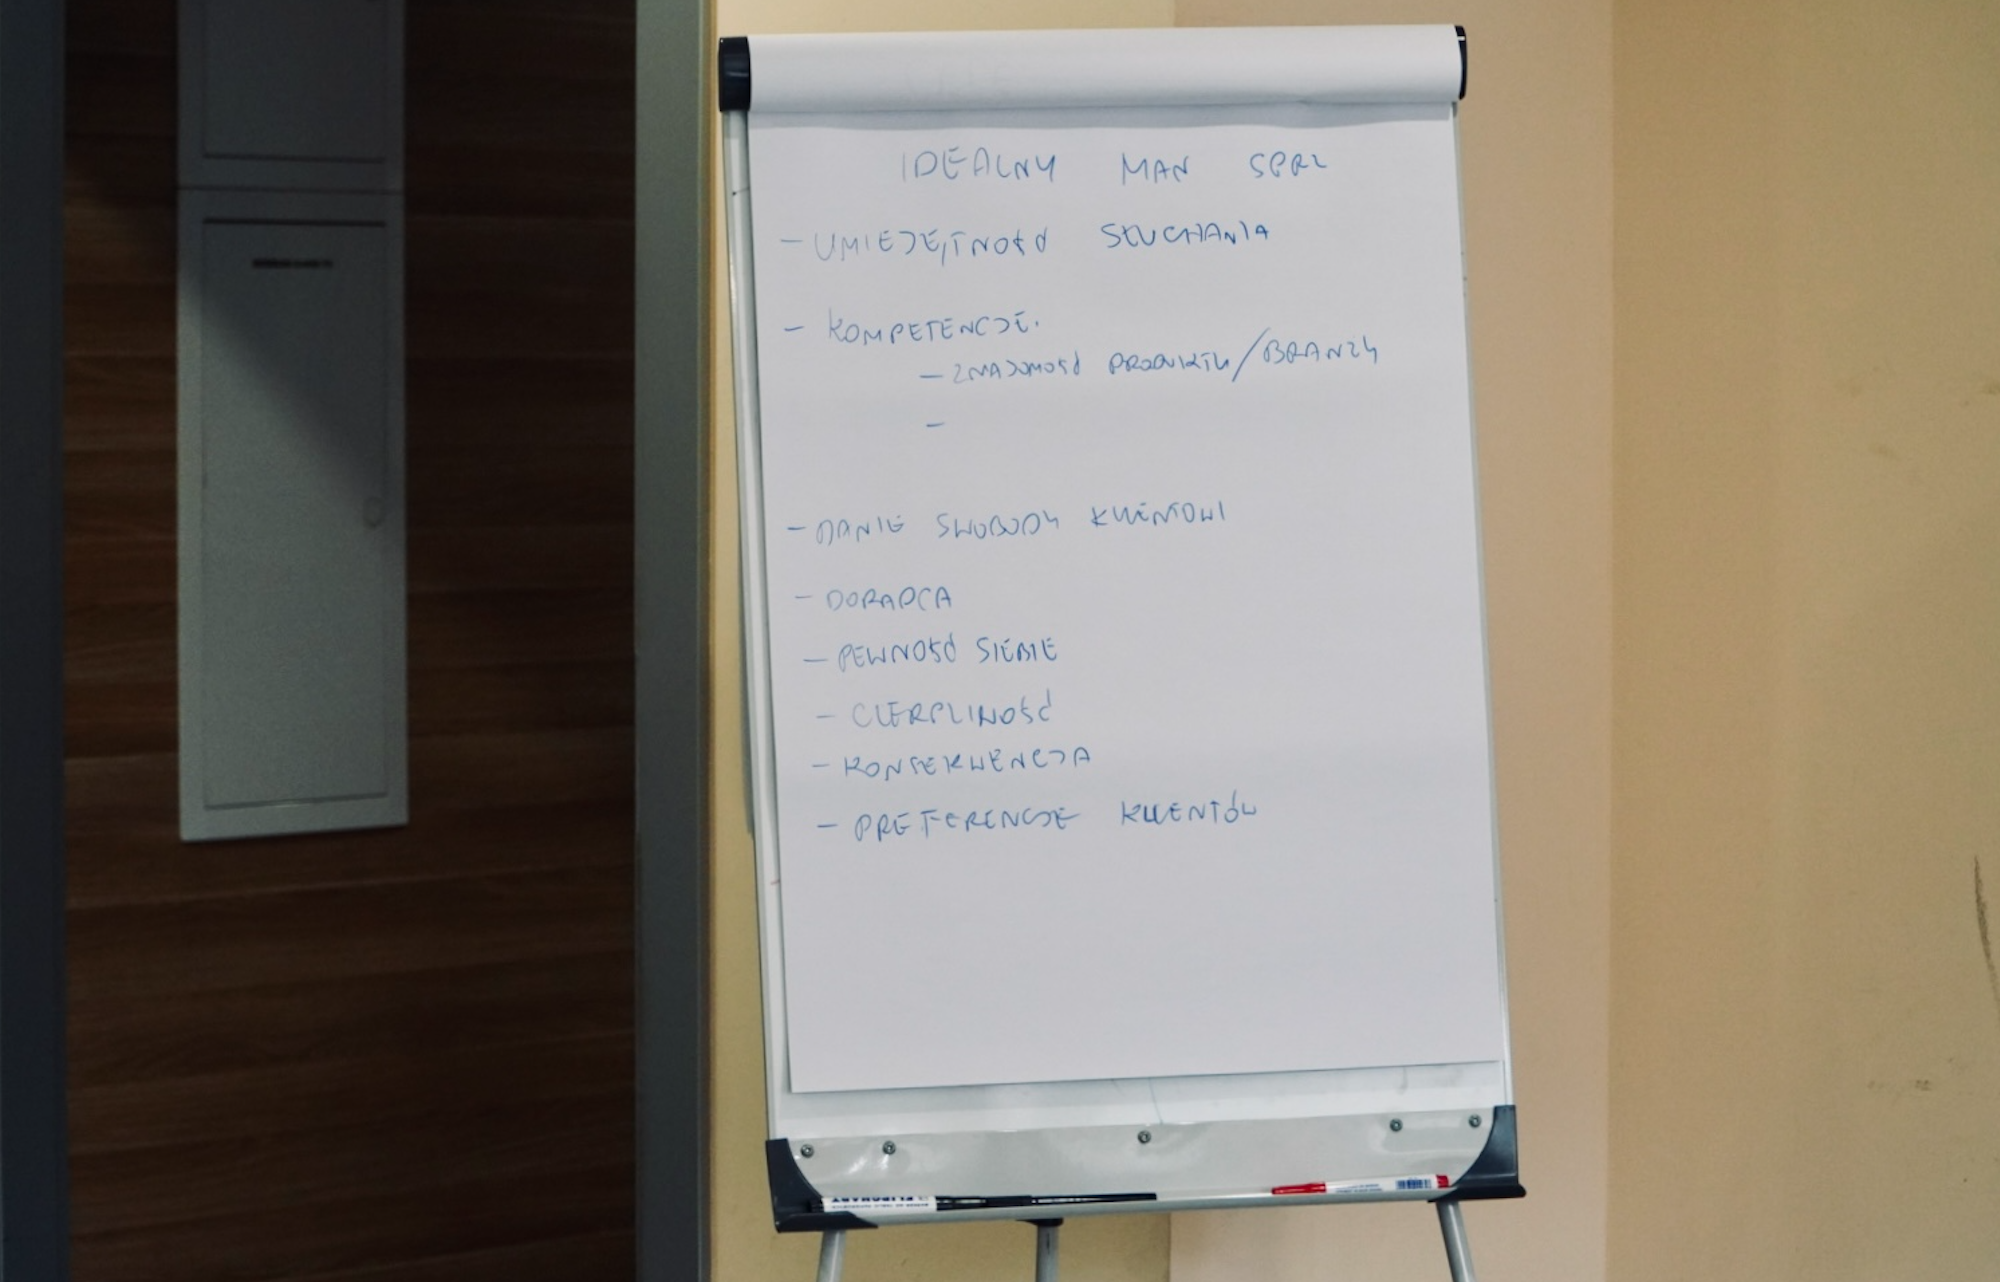 IDEALNY MAN SPRZ
- UMIEJĘTNOŚĆ SŁUCHANIA
- KOMPETENCJE.
- ZNAJOMOŚĆ PRODUKTU/BRANŻY
-
- DANIE SWOBODY KLIENTOWI
- DORADCA
- PEWNOŚĆ SIEBIE
- CIERPLIWOŚĆ
- KONSEKWENCJA
- PREFERENCJE KLIENTÓW
FLIPCHART